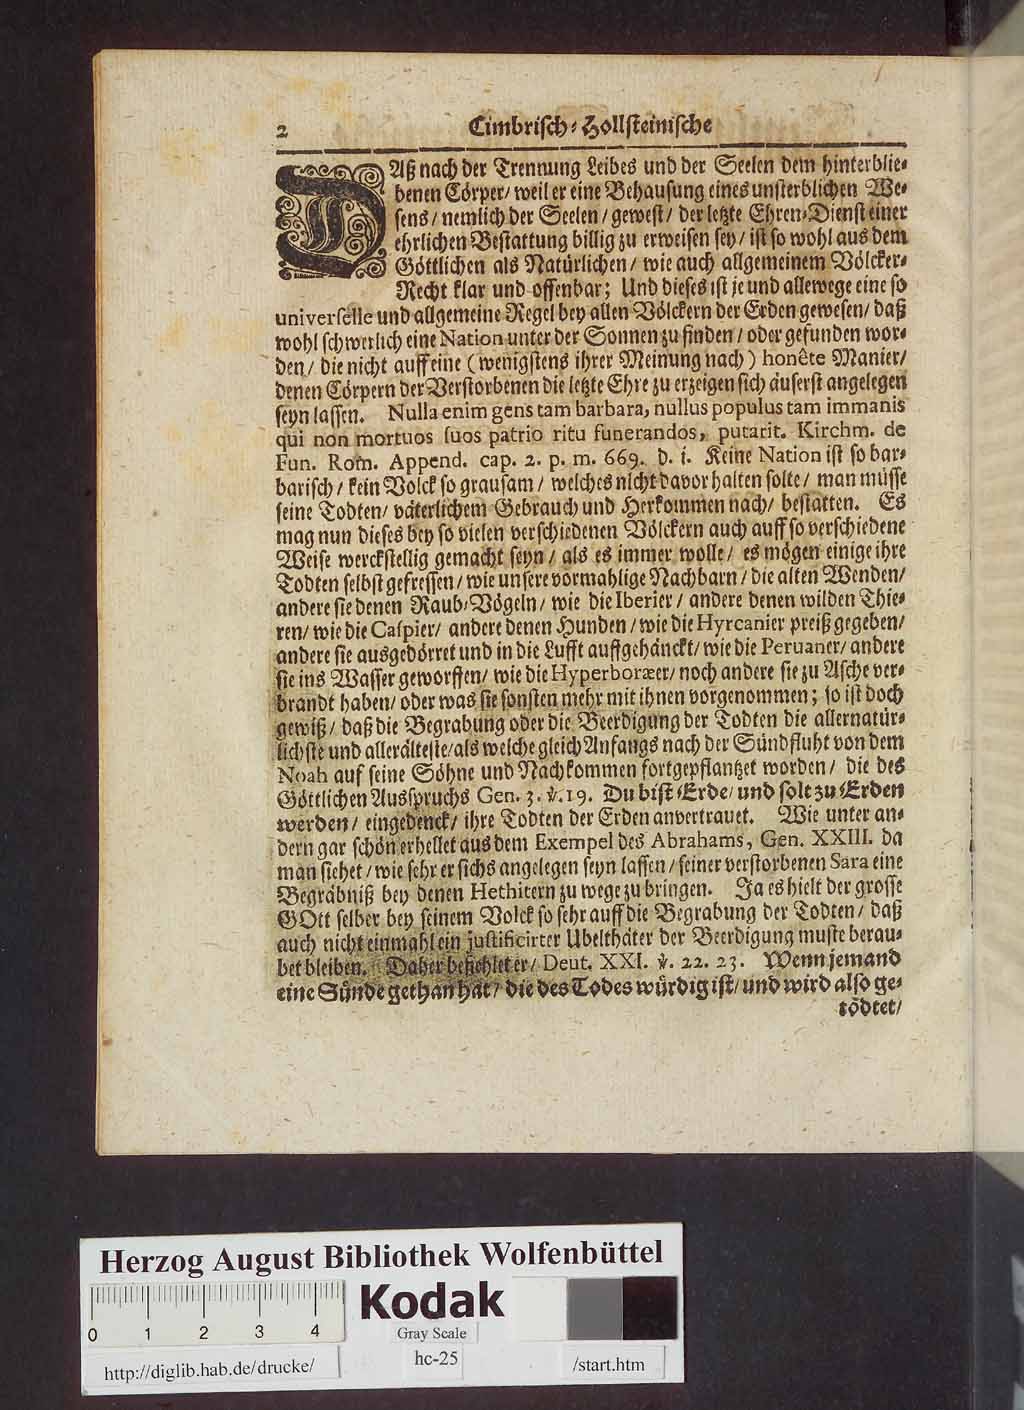 2 Cimbrisch-Hollsteinische
DAß nach der Trennung Leibes und der Seelen dem hinterblie-
benen Cörper/ weil er eine Behausung eines unsterblichen We-
sens/ nemlich der Seelen/ gewest/ der letzte Ehren-Dienst einer
ehrlichen Bestattung billig zu erweisen sey/ ist so wohl aus dem
Göttlichen als Natürlichen/ wie auch allgemeinem Völcker-
Recht klar und offenbar; Und dieses ist je und allewege eine so
universelle und allgemeine Regel bey allen Völckern der Erden gewesen/ daß
wohl schwerlich eine Nation unter der Sonnen zu finden/ oder gefunden wor-
den/ die nicht auff eine (wenigstens ihrer Meinung nach) honête Manier/
denen Cörpern der Verstorbenen die letzte Ehre zu erzeigen sich äuserst angelegen
seyn lassen. Nulla enim gens tam barbara, nullus populus tam immanis
qui non mortuos suos patrio ritu funerandos, putarit. Kirchm. de
Fun. Rom. Append. cap. 2. p. m. 669. d. i. Keine Nation ist so bar-
barisch/ kein Volck so grausam/ welches nicht davor halten solte/ man müsse
seine Todten/ väterlichem Gebrauch und Herkommen nach/ bestatten. Es
mag nun dieses bey so vielen verschiedenen Völckern auch auff so verschiedene
Weise werckstellig gemacht seyn/ als es immer wolle/ es mögen einige ihre
Todten selbst gefressen/ wie unsere vormahlige Nachbarn/ die alten Wenden/
andere sie denen Raub-Vögeln/ wie die Iberier/ andere denen wilden Thie-
ren/ wie die Caspier/ andere denen Hunden/ wie die Hyrcanier preiß gegeben/
andere sie ausgedörret und in die Lufft auffgehänckt/ wie die Peruaner/ andere
sie ins Wasser geworffen/ wie die Hyperboræer/ noch andere sie zu Asche ver-
brandt haben/ oder was sie sonsten mehr mit ihnen vorgenommen; so ist doch
gewiß/ daß die Begrabung oder die Beerdigung der Todten die allernatür-
lichste und allerälteste/ als welche gleich Anfangs nach der Sündfluht von dem
Noah auf seine Söhne und Nachkommen fortgepflantzet worden/ die des
Göttlichen Ausspruchs Gen. 3. ℣. 19. Du bist Erde/ und solt zu Erden
werden/ eingedenck/ ihre Todten der Erden anvertrauet. Wie unter an-
dern gar schön erhellet aus dem Exempel des Abrahams, Gen. XXIII. da
man siehet/ wie sehr er sichs angelegen seyn lassen/ seiner verstorbenen Sara eine
Begräbniß bey denen Hethitern zu wege zu bringen. Ja es hielt der grosse
GOtt selber bey seinem Volck so sehr auff die Begrabung der Todten/ daß
auch nicht einmahl ein justificirter Ubelthäter der Beerdigung muste berau-
bet bleiben. Daher befiehlet er/ Deut. XXI. ℣. 22. 23. Wenn jemand
eine Sünde gethan hat/ die des Todes würdig ist/ und wird also ge-
tödtet/
Herzog August Bibliothek Wolfenbüttel
0 1 2 3 4
Kodak
Gray Scale
http://diglib.hab.de/drucke/
hc-25
/start.htm